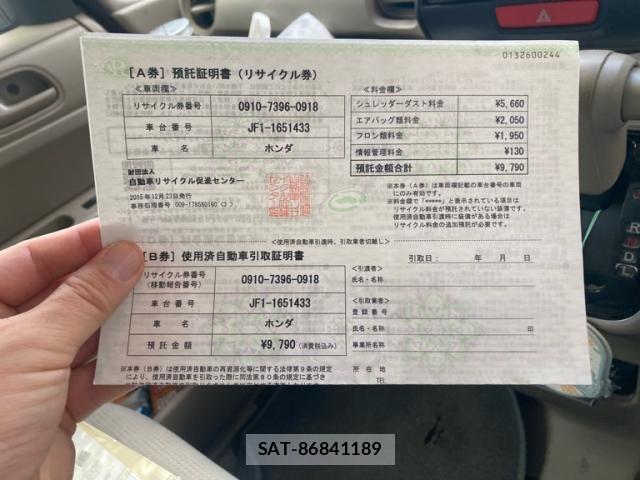 0132600244
［A券］預託証明書（リサイクル券）
＜車両欄＞
リサイクル券番号 0910-7396-0918
車台番号 JF1-1651433
車名 ホンダ
＜料金欄＞
シュレッダーダスト料金 ¥5,660
エアバッグ類料金 ¥2,050
フロン類料金 ¥1,950
情報管理料金 ¥130
預託金額合計 ¥9,790
財団法人
自動車リサイクル促進センター
2015年12月23日発行
※本券（A券）は車両欄記載の車台番号の車両
にのみ有効です。
※料金欄で「*****」と表示されている項目は
リサイクル料金が預託されていない装備です。
使用済自動車引渡時に装備がある場合は
リサイクル料金の追加預託が必要です。
＜使用済自動車引渡時、引取業者切離し＞
［B券］使用済自動車引取証明書
リサイクル券番号
（移動報告番号） 0910-7396-0918
車台番号 JF1-1651433
車名 ホンダ
預託金額 ¥9,790（消費税込み）
引取日： 年 月 日
＜引渡者＞
氏名・名称
＜引取業者＞
登録番号
氏名・名称 印
事業所名称
所在地
TEL
※本券（B券）は使用済自動車の再資源化等に関する法律第９条の規定
により、使用済自動車を引取った際に同法第８０条の規定に基づき
R
N
D
SAT-86841189